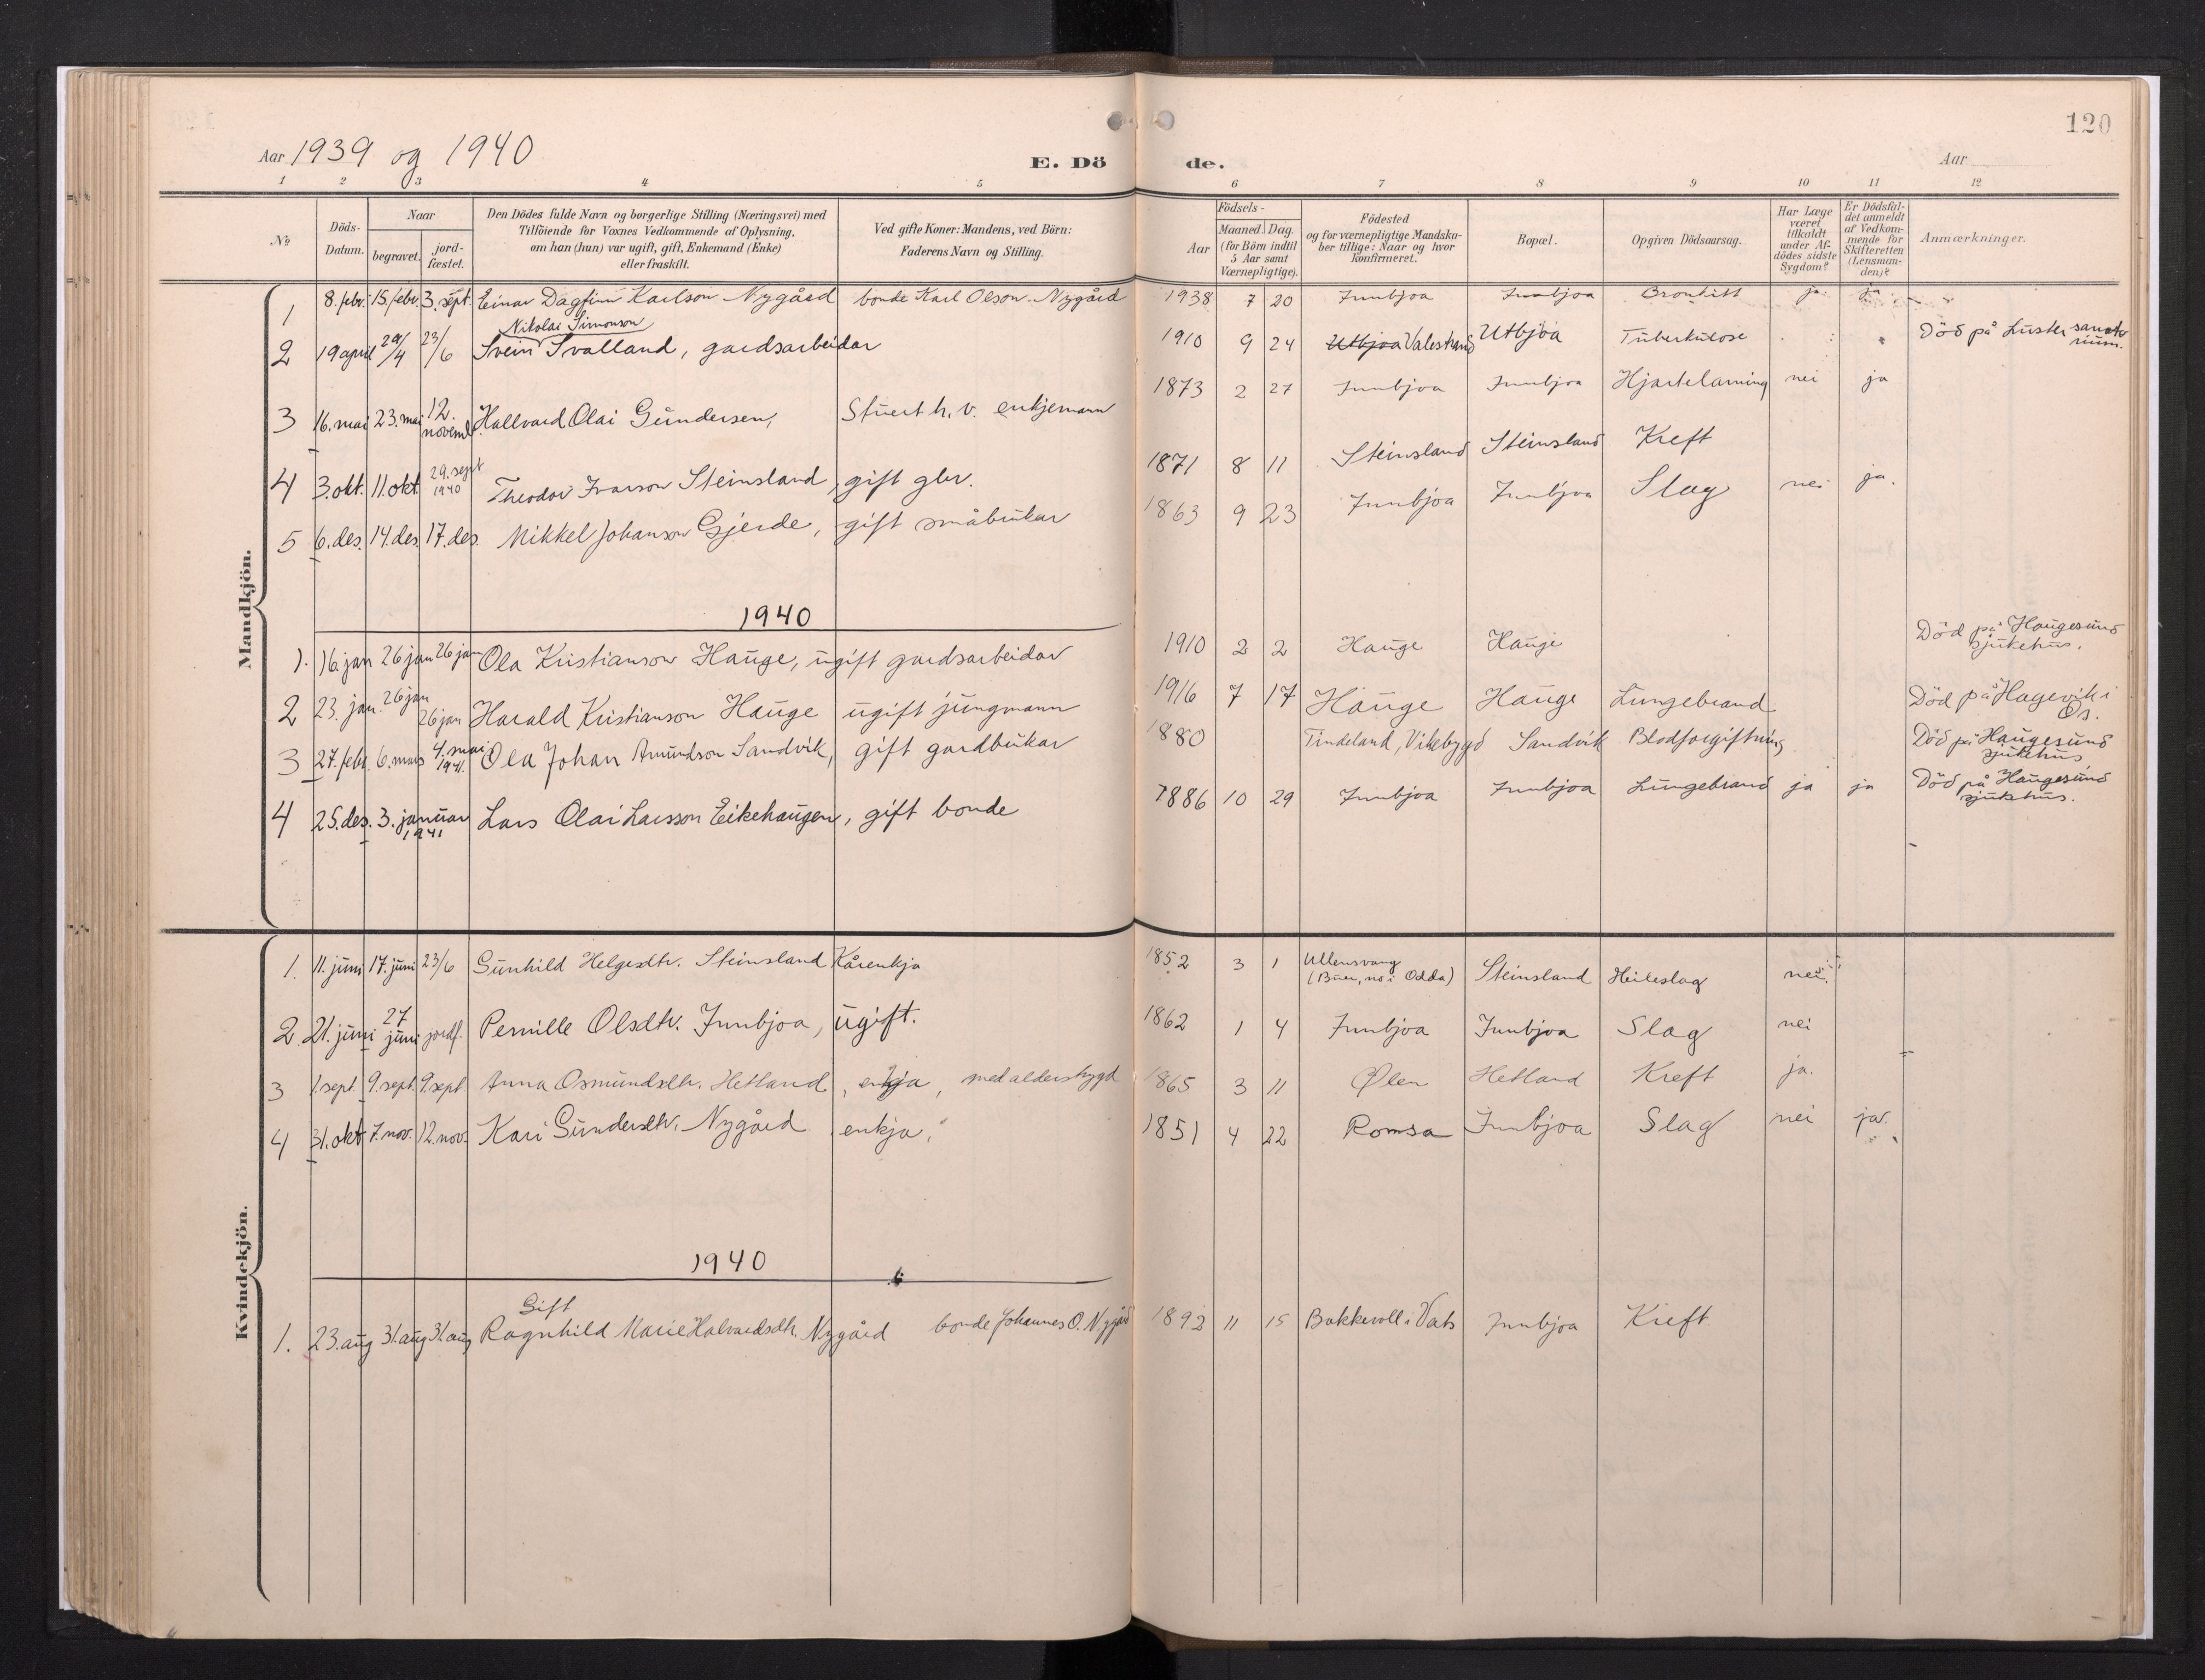 120
Aar 1939 og 1940
E. Dö de.
Aar
1 2 3 4 5 6 7 8 9 10 11 12
No
Döds-Datum.
Naar
begravet.
jord-fæstet.
Den Dödes fulde Navn og borgerlige Stilling (Næringsvei) med
Tilföiende for Voxnes Vedkommende af Oplysning,
om han (hun) var ugift, gift, Enkemand (Enke)
eller fraskilt.
Ved gifte Koner: Mandens, ved Börn:
Faderens Navn og Stilling.
Födsels-
Aar
Maaned. Dag.
(for Börn indtil
5 Aar samt
Værnepligtige).
Födested
og for værnepligtige Mandska-
ber tillige: Naar og hvor
konfirmeret.
Bopæl.
Opgiven Dödsaarsag.
Har Læge
været
tilkaldt
under Af-
dödes sidste
Sygdom?
Er Dödsfal-
det anmeldt
af Vedkom-
mende for
Skifteretten
(Lensman-
den)?
Anmærkninger.
Mandkjön.
1 8. febr. 15. febr. 3. sept. Einar Dagfinn Karlson Nygård bonde Karl Olson Nygård 1938 7 20 Innbjoa Innbjoa Bronkitt ja ja
Nikolai Simonson
2 19 april 29/4 23/6 Svein Svalland, gardsarbeidar 1910 9 24 Utbjoa Valestrand Utbjoa Tuberkulose Död på Luster sanatorium.
3 16. mai 23. mai 12. novemb. Hallvard Olai Gundersen, Stuert h. v. enkjemann 1873 2 27 Innbjoa Innbjoa Hjartelaming nei ja
4 3. okt. 11. okt. 29. sept 1940 Theodor Ivarson Steinsland, gift gbr. 1871 8 11 Steinsland Steinsland Kreft
5 6. des. 14. des. 17. des. Mikkel Johanson Gjerde, gift småbrukar 1863 9 23 Innbjoa Innbjoa Slag nei ja.
1940
1. 16. jan 26 jan 26 jan Ola Kristianson Hauge, ugift gardsarbeidar 1910 2 2 Hauge Hauge Död på Haugesund sjukehus.
2 23. jan. 26 jan 26 jan Harald Kristianson Hauge ugift jungmann 1916 7 17 Hauge Hauge Lungebrand Död på Hagevik i Os.
3 27. febr. 6. mars 4. mai 1941. Ola Johan Amundson Sandvik, gift gardbrukar 1880 Tindeland, Vikebygd Sandvik Blodforgiftning Död på Haugesund sjukehus
4 25. des. 3. januar 1941 Lars Olai Larsson Eikehaugen, gift bonde 1886 10 29 Innbjoa Innbjoa Lungebrand ja ja Död på Haugesund sjukehus.
Kvindekjön.
1. 11. juni 17. juni 23/6 Gunhild Helgesdtr. Steinsland Kårenkja 1852 3 1 Ullensvang (Buer, no i Odda) Steinsland Heileslag nei.
2. 21. juni 27 juni jordf. Pernille Olsdtr. Innbjoa, ugift. 1862 1 4 Innbjoa Innbjoa Slag nei
3 1. sept. 9. sept. 9. sept Anna Osmundsdtr. Hetland, enkja, med alderstrygd 1865 3 11 Ølen Hetland Kreft ja.
4 31. okt. 7. nov. 12. nov. Kari Gundersdtr. Nygård enkja, 1851 4 22 Romsa Innbjoa Slag nei ja.
1940
Gift
1. 23. aug 31. aug 31. aug Ragnhild Marie Halvardsdtr. Nygård bonde Johannes O. Nygård 1892 11 15 Bakkevoll i Vats Innbjoa Kreft